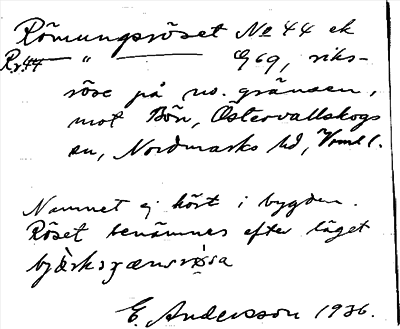 Römungsröset No 44 ek
Rr 44 — " — G69, riks-
röse på no. gränsen,
mot Bön, Östervallskogs
sn, Nordmarks hd, Vrml l.
Namnet ej hört i bygden.
Röset benämnes efter läget
E. Andersson 1936.